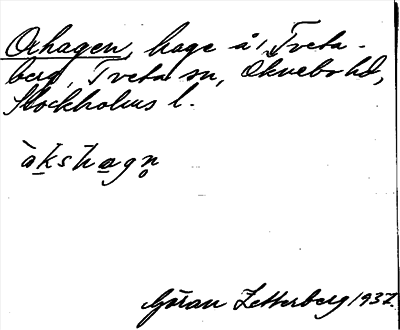 Oxhagen, hage å Tveta-
berg, Tveta sn, Öknebo hd,
Stockholms l.
àkshagn̥
Göran Zetterberg 1937.